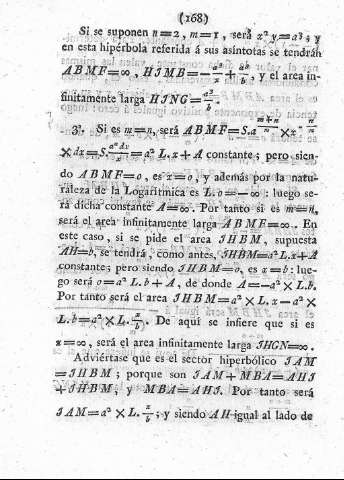 (168)
Si se suponen n=2, m=1, será x² y=a³; y
en esta hipérbola referida á sus asíntotas se tendrán
ABMF=∞, HIMB=-a³/x+a³/b, y el area in-
finitamente larga HING=a³/b.
3. Si es m=n, será ABMF=S.a^(m+n)/n ×x^-n/n
×dx=S.a² dx/x=a² L.x+A constante; pero sien-
do ABMF=0, es x=0, y además por la natu-
raleza de la Logarítmica es L.0=-∞: luego se-
rá dicha constante A=∞. Por tanto si es m=n,
será el area infinitamente larga ABMF=∞. En
este caso, si se pide el area IHBM, supuesta
AH=b, se tendrá, como antes, IHBM=a² L.x+A
constante; pero siendo IHBM=0, es x=b: lue-
go será 0=a² L.b+A, de donde A=-a²×L.b.
Por tanto será el area IHBM=a²×L.x-a²×
L.b=a²×L.x/b. De aquí se infiere que si es
x=∞, será el area infinitamente larga IHGN=∞.
Adviértase que es el sector hiperbólico IAM
=IHBM; porque son IAM+MBA=AHI
+IHBM, y MBA=AHI. Por tanto será
IAM=a²×L.x/b; y siendo AH igual al lado de